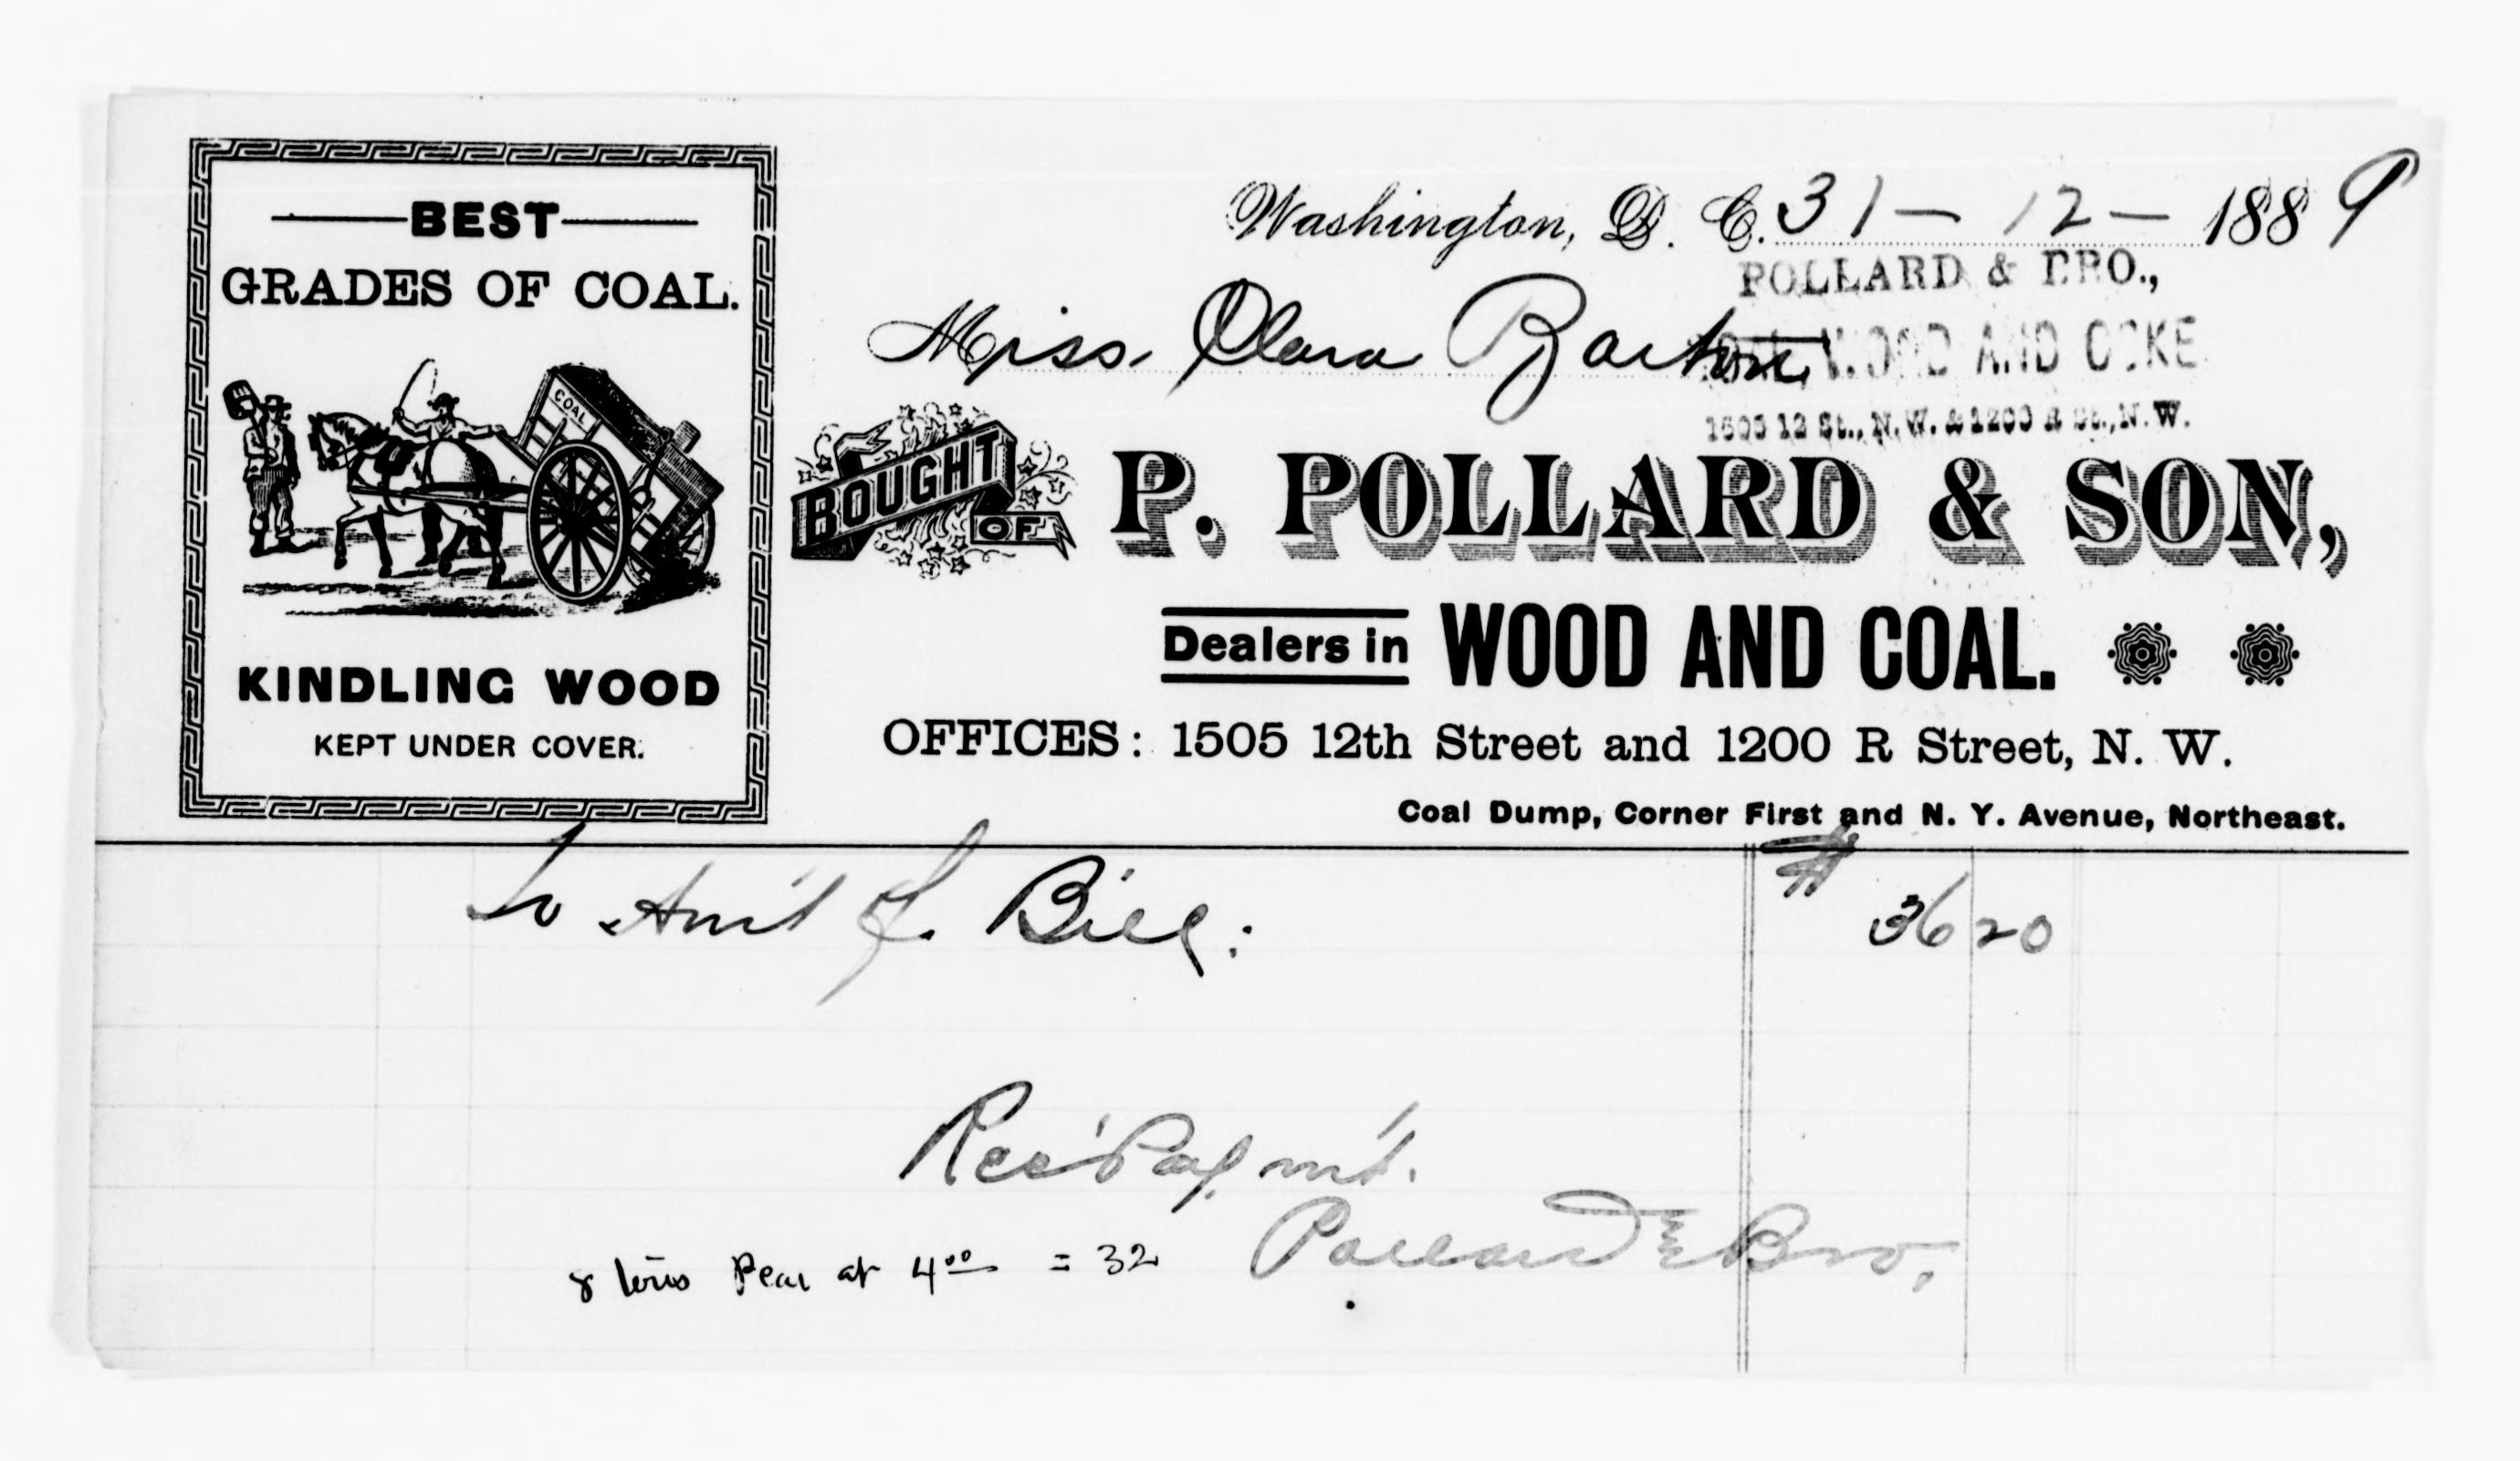 BEST
GRADES OF COAL.
COAL
KINDLING WOOD
KEPT UNDER COVER.
Washington, D. C. 31 - 12 - 1889
POLLARD & BRO.,
Miss Clara Barton,
WOOD AND COKE
1505 12 St., N. W. & 1200 R St., N. W.
BOUGHT OF P. POLLARD & SON,
Dealers in WOOD AND COAL.
OFFICES: 1505 12th Street and 1200 R Street, N. W.
Coal Dump, Corner First and N. Y. Avenue, Northeast.
To Am't f. Bill: $ 36 20
Rec' Paym't.
Pollard & Bro.
8 tons Pea at 4 00 = 32